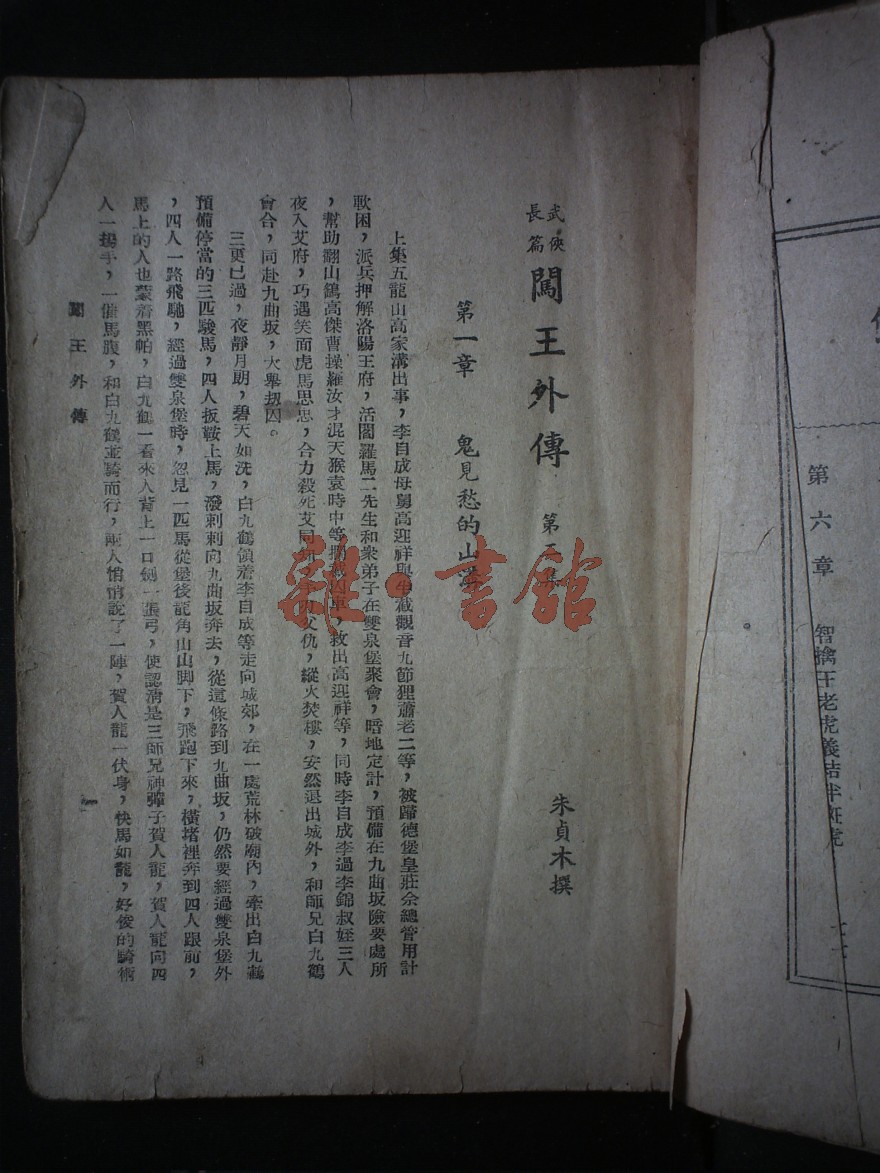 第六章 智擒王老虎義結半
武俠長篇 闖王外傳 第
朱貞木撰
第一章 鬼見愁的山
上集五龍山高家溝出事,李自成母舅高迎祥與生截觀音九節狸蕭老二等,被歸德堡皇莊佘總管用計
軟困,派兵押解洛陽王府,活閻羅馬二先生和衆弟子在雙泉堡聚會,暗地定計,預備在九曲坂險要處所
,幫助翻山鷂高傑曹操羅汝才混天猴袁時中等攔截囚車,救出高迎祥等,同時李自成李過李錦叔姪三人
夜入艾府,巧遇笑面虎馬思忠,合力殺死艾同知,父仇,縱火焚樓,安然退出城外,和師兄白九鶴
會合,同赴九曲坂,大舉刧囚。
三更已過,夜靜月朗,碧天如洗,白九鶴領着李自成等走向城郊,在一處荒林破廟內,牽出白九鶴
預備停當的三匹駿馬,四人扳鞍上馬,潑剌剌向九曲坂奔去,從這條路到九曲坂,仍然要經過雙泉堡外
,四人一路飛馳,經過雙泉堡時,忽見一匹馬從堡後龍角山山脚下,飛跑下來,橫堵裡奔到四人跟前,
馬上的人也蒙着黑帕,白九鶴一看來人背上一口劍一張弓,便認淸是三師兄神彈子賀人龍,賀人龍向四
人一揚手,一催馬腹,和白九鶴並騎而行,兩人悄悄說了一陣,賀人龍一伏身,快馬如龍,好俊的騎術
闖王外傳
雜·書館